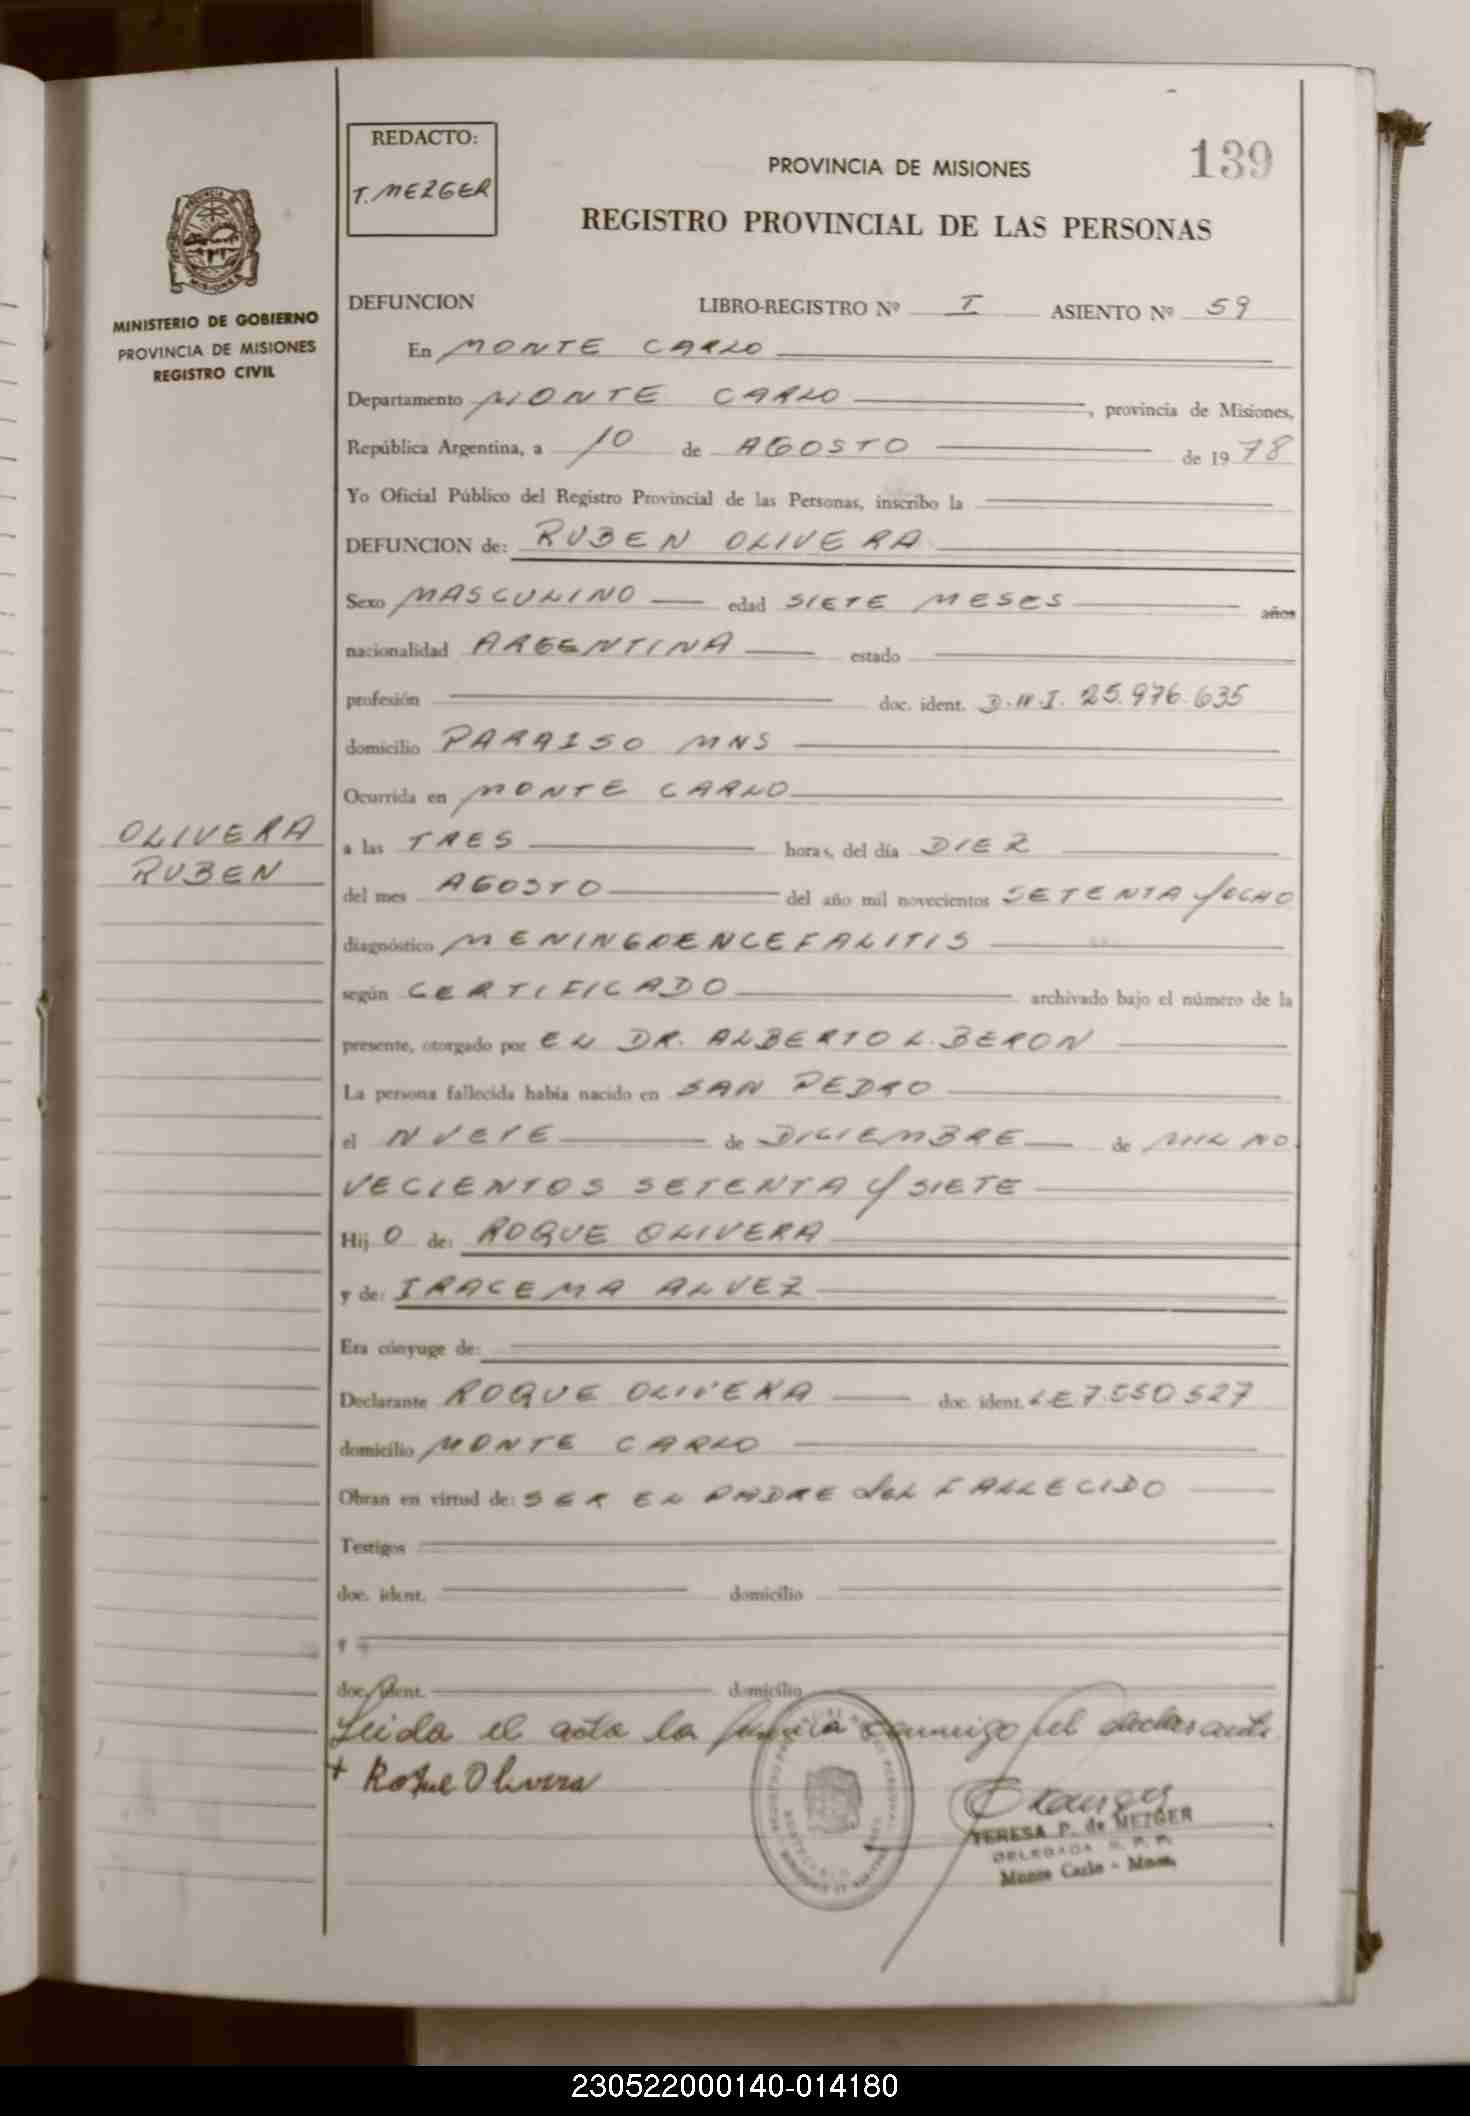 REDACTO:
T. MEZGER
139
PROVINCIA DE MISIONES
REGISTRO PROVINCIAL DE LAS PERSONAS
MINISTERIO DE GOBIERNO
PROVINCIA DE MISIONES
REGISTRO CIVIL
DEFUNCION LIBRO-REGISTRO Nº I ASIENTO Nº 59
En MONTE CARLO
Departamento MONTE CARLO, provincia de Misiones,
República Argentina, a 10 de AGOSTO de 1978
Yo Oficial Público del Registro Provincial de las Personas, inscribo la
DEFUNCION de: RUBEN OLIVERA
Sexo MASCULINO edad SIETE MESES años
nacionalidad ARGENTINA estado
profesión doc. ident. D.N.I. 25.976.635
domicilio PARAISO MNS
Ocurrida en MONTE CARLO
OLIVERA
RUBEN
a las TRES horas, del día DIEZ
del mes AGOSTO del año mil novecientos SETENTA y OCHO
diagnóstico MENINGOENCEFALITIS
según CERTIFICADO archivado bajo el número de la
presente, otorgado por EL DR. ALBERTO L. BERON
La persona fallecida había nacido en SAN PEDRO
el NUEVE de DICIEMBRE de MIL NO
VECIENTOS SETENTA y SIETE
Hij O de: ROQUE OLIVERA
y de: IRACEMA ALVEZ
Era cónyuge de:
Declarante ROQUE OLIVERA doc. ident. LE 7.550.527
domicilio MONTE CARLO
Obran en virtud de: SER EL PADRE del FALLECIDO
Testigos
doc. ident. domicilio
y
doc. ident. domicilio
Leida el acta la firma conmigo el declarante
+ Roque Olivera
TERESA P. de METGER
DELEGADA R. P. P.
Monte Carlo - Mnes.
230522000140-014180